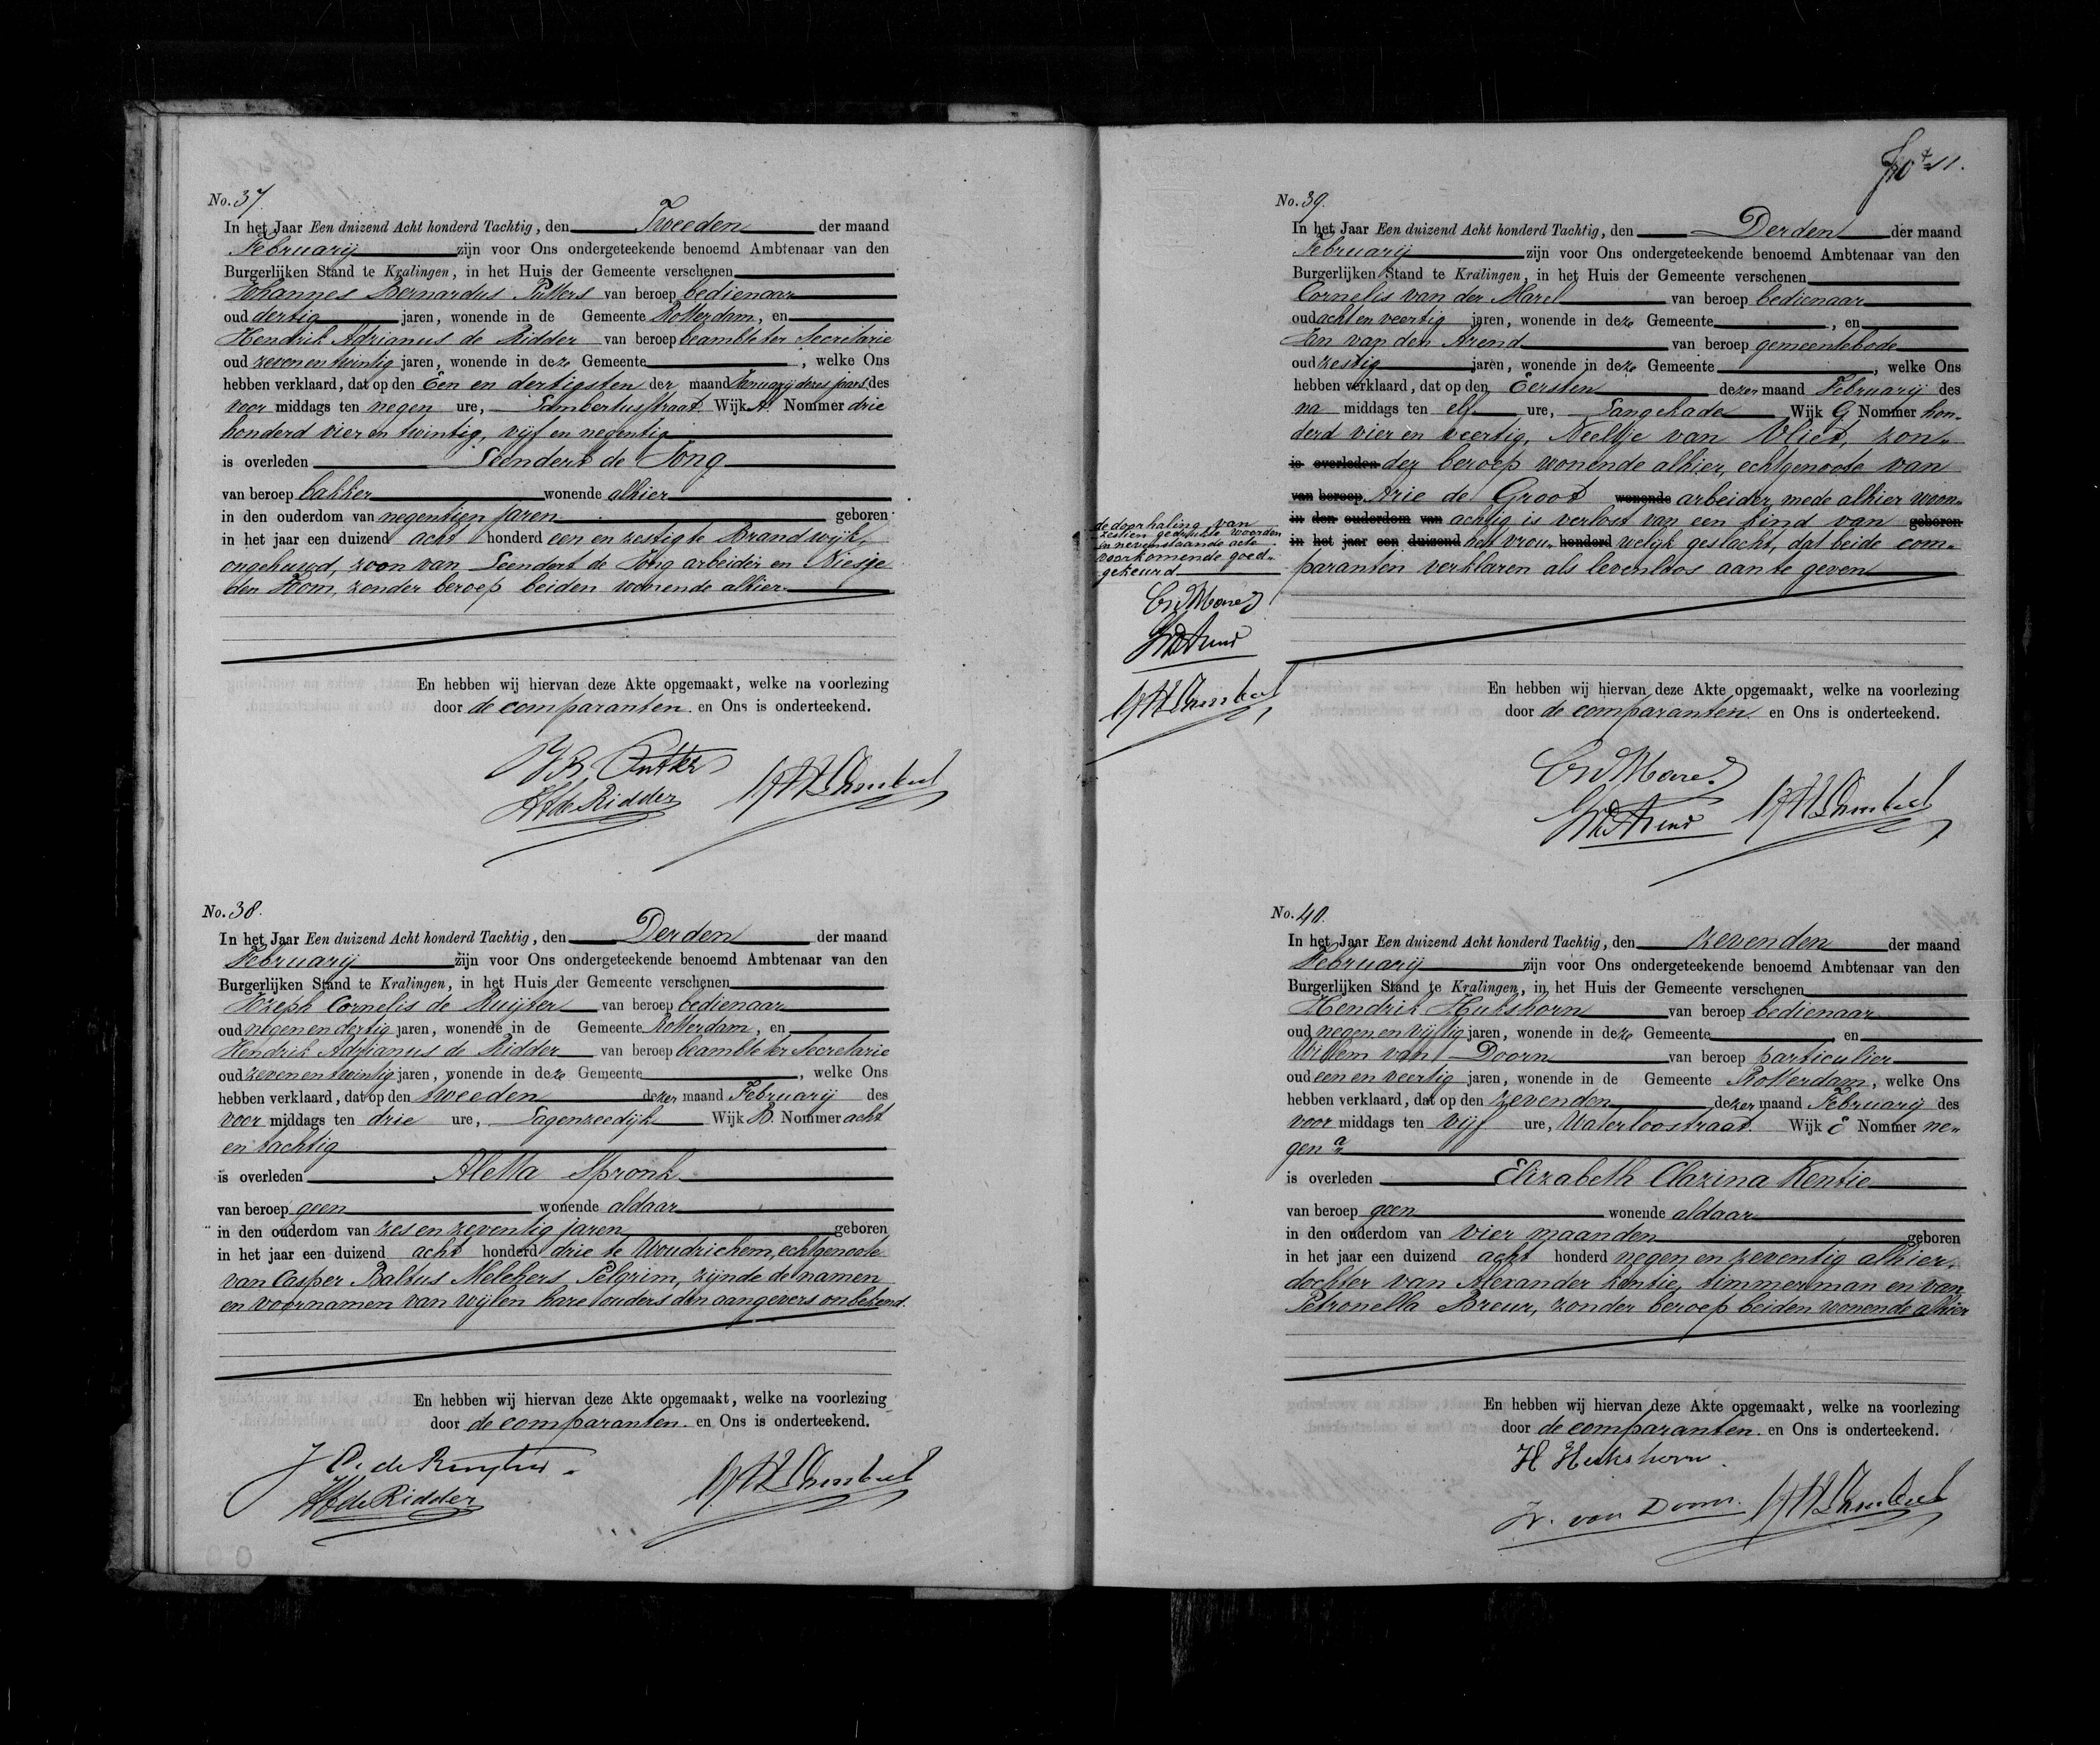 No. 37.
In het Jaar Een duizend Acht honderd Tachtig, den Tweeden der maand
February zijn voor Ons ondergeteekende benoemd Ambtenaar van den
Burgerlijken Stand te Kralingen, in het Huis der Gemeente verschenen
Johannes Bernardus Putters van beroep bedienaar
oud dertig jaren, wonende in de Gemeente Rotterdam, en
Hendrik Adrianus de Ridder van beroep beambte ter Secretarie
oud zeven en twintig jaren, wonende in deze Gemeente, welke Ons
hebben verklaard, dat op den Een en dertigsten der maand January dezes jaars des
voor middags ten negen ure, Lambertusstraat Wijk A. Nommer drie
honderd vier en twintig, vijf en negentig
is overleden Leendert de Jong
van beroep bakker wonende alhier
in den ouderdom van negentien jaren geboren
in het jaar een duizend acht honderd een en zestig te Brandwijk,
ongehuwd, zoon van Leendert de Jong arbeider en Niesje
den Toom, zonder beroep beiden wonende alhier
En hebben wij hiervan deze Akte opgemaakt, welke na voorlezing
door de comparanten en Ons is onderteekend.
J B Putters
HA de Ridder
No. 38.
In het Jaar Een duizend Acht honderd Tachtig, den Derden der maand
February zijn voor Ons ondergeteekende benoemd Ambtenaar van den
Burgerlijken Stand te Kralingen, in het Huis der Gemeente verschenen
Jozeph Cornelis de Ruijter van beroep bedienaar
oud negen en dertig jaren, wonende in de Gemeente Rotterdam, en
Hendrik Adrianus de Ridder van beroep beambte ter Secretarie
oud zeven en twintig jaren, wonende in deze Gemeente, welke Ons
hebben verklaard, dat op den tweeden dezer maand February des
voor middags ten drie ure, Lagenzeedijk Wijk B. Nommer acht
en tachtig
is overleden Aletta Spronk
van beroep geen wonende aldaar
in den ouderdom van zes en zeventig jaren geboren
in het jaar een duizend acht honderd drie te Woudrichem, echtgenoote
van Casper Baltus Melchers Pelgrim, zijnde de namen
en voornamen van wijlen hare ouders den aangevers onbekend.
En hebben wij hiervan deze Akte opgemaakt, welke na voorlezing
door de comparanten en Ons is onderteekend.
J C. de Ruijter.
HA de Ridder
11.
No. 39.
In het Jaar Een duizend Acht honderd Tachtig, den Derden der maand
February zijn voor Ons ondergeteekende benoemd Ambtenaar van den
Burgerlijken Stand te Kralingen, in het Huis der Gemeente verschenen
Cornelis van der Marel van beroep bedienaar
oud acht en veertig jaren, wonende in deze Gemeente, en
Jan van den Arend van beroep gemeentebode
oud zestig jaren, wonende in deze Gemeente, welke Ons
hebben verklaard, dat op den Eersten dezer maand February des
na middags ten elf ure, Langekade Wijk G Nommer hon-
derd vier en veertig, Neeltje van Vliet, zon-
is overleden der beroep wonende alhier, echtgenoote van
van beroep Arie de Groot wonende arbeider, mede alhier woon-
in den ouderdom van achtig is verlost van een kind van geboren
in het jaar een duizend het vrou- honderd welijk geslacht, dat beide com-
paranten verklaren als levenloos aan te geven
de doorhaling van
zestien gedrukte woorden
in nevenstaande acte
voorkomende goed-
gekeurd
En hebben wij hiervan deze Akte opgemaakt, welke na voorlezing
door de comparanten en Ons is onderteekend.
No. 40.
In het Jaar Een duizend Acht honderd Tachtig, den zevenden der maand
February zijn voor Ons ondergeteekende benoemd Ambtenaar van den
Burgerlijken Stand te Kralingen, in het Huis der Gemeente verschenen
Hendrik Hukshorn van beroep bedienaar
oud negen en vijftig jaren, wonende in deze Gemeente en
Willem van Doorn van beroep particulier
oud een en veertig jaren, wonende in de Gemeente Rotterdam, welke Ons
hebben verklaard, dat op den zevenden dezer maand February des
voor middags ten vijf ure, Waterloostraat. Wijk E Nommer ne-
gen a
is overleden Elizabeth Clazina Kentie
van beroep geen wonende aldaar
in den ouderdom van vier maanden geboren
in het jaar een duizend acht honderd negen en zeventig alhier,
dochter van Alexander Kentie, timmerman en van
Petronella Breur, zonder beroep beiden wonende alhier
En hebben wij hiervan deze Akte opgemaakt, welke na voorlezing
door de comparanten en Ons is onderteekend.
H Hukshorn.
W. van Doorn.